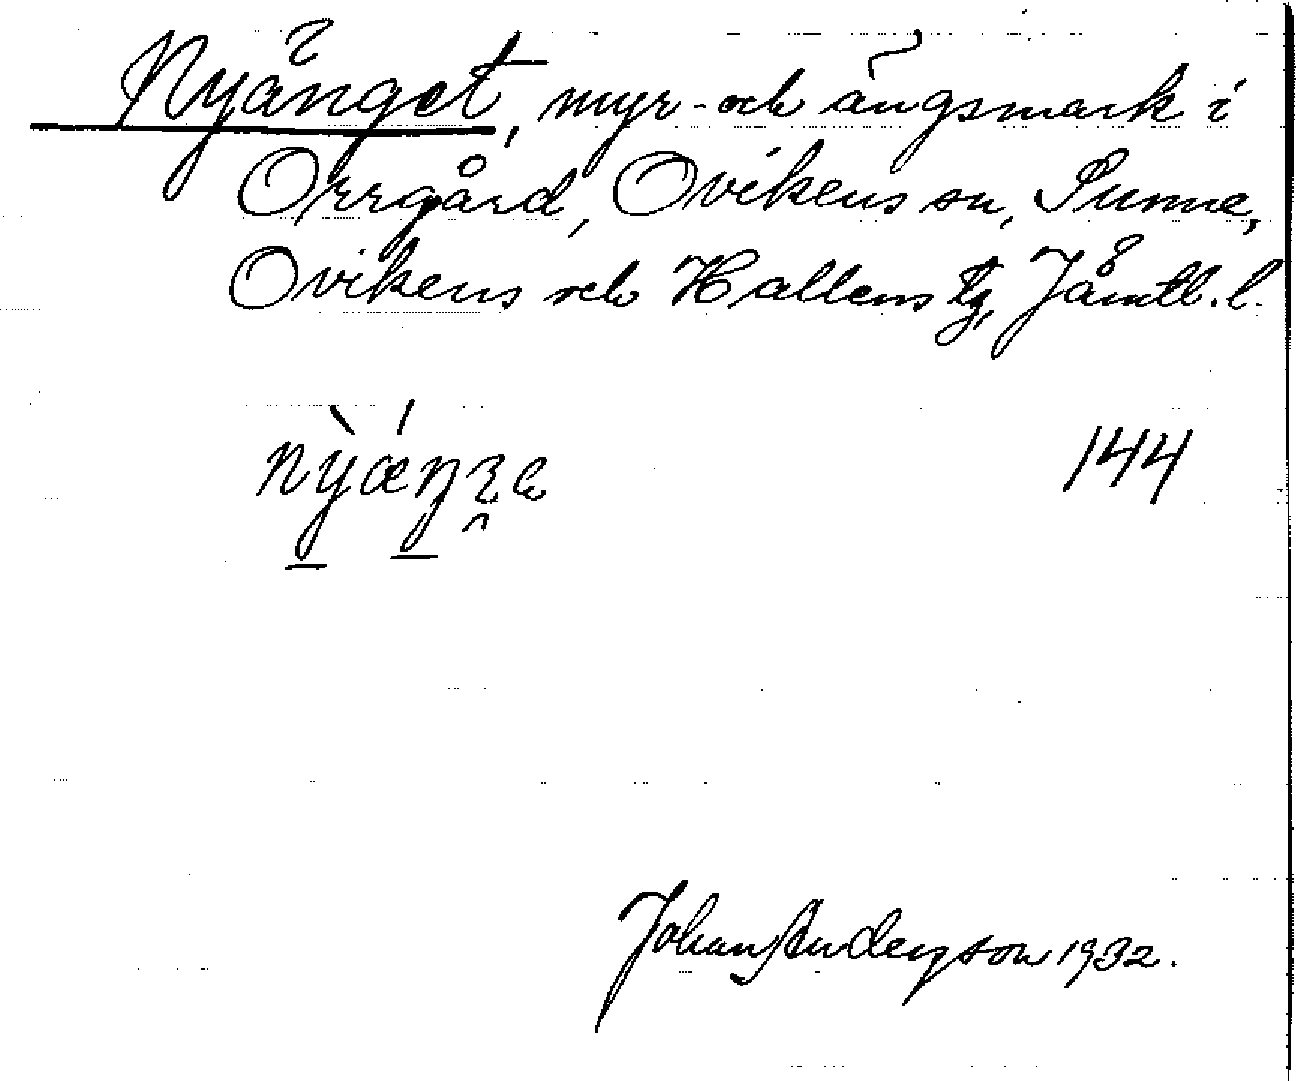 Nyänget, myr- och ängsmark i
Orrgård, Ovikens sn, Sunne,
Ovikens och Hallens tg, Jämtl. l.
144
Johan Anderson 1932.